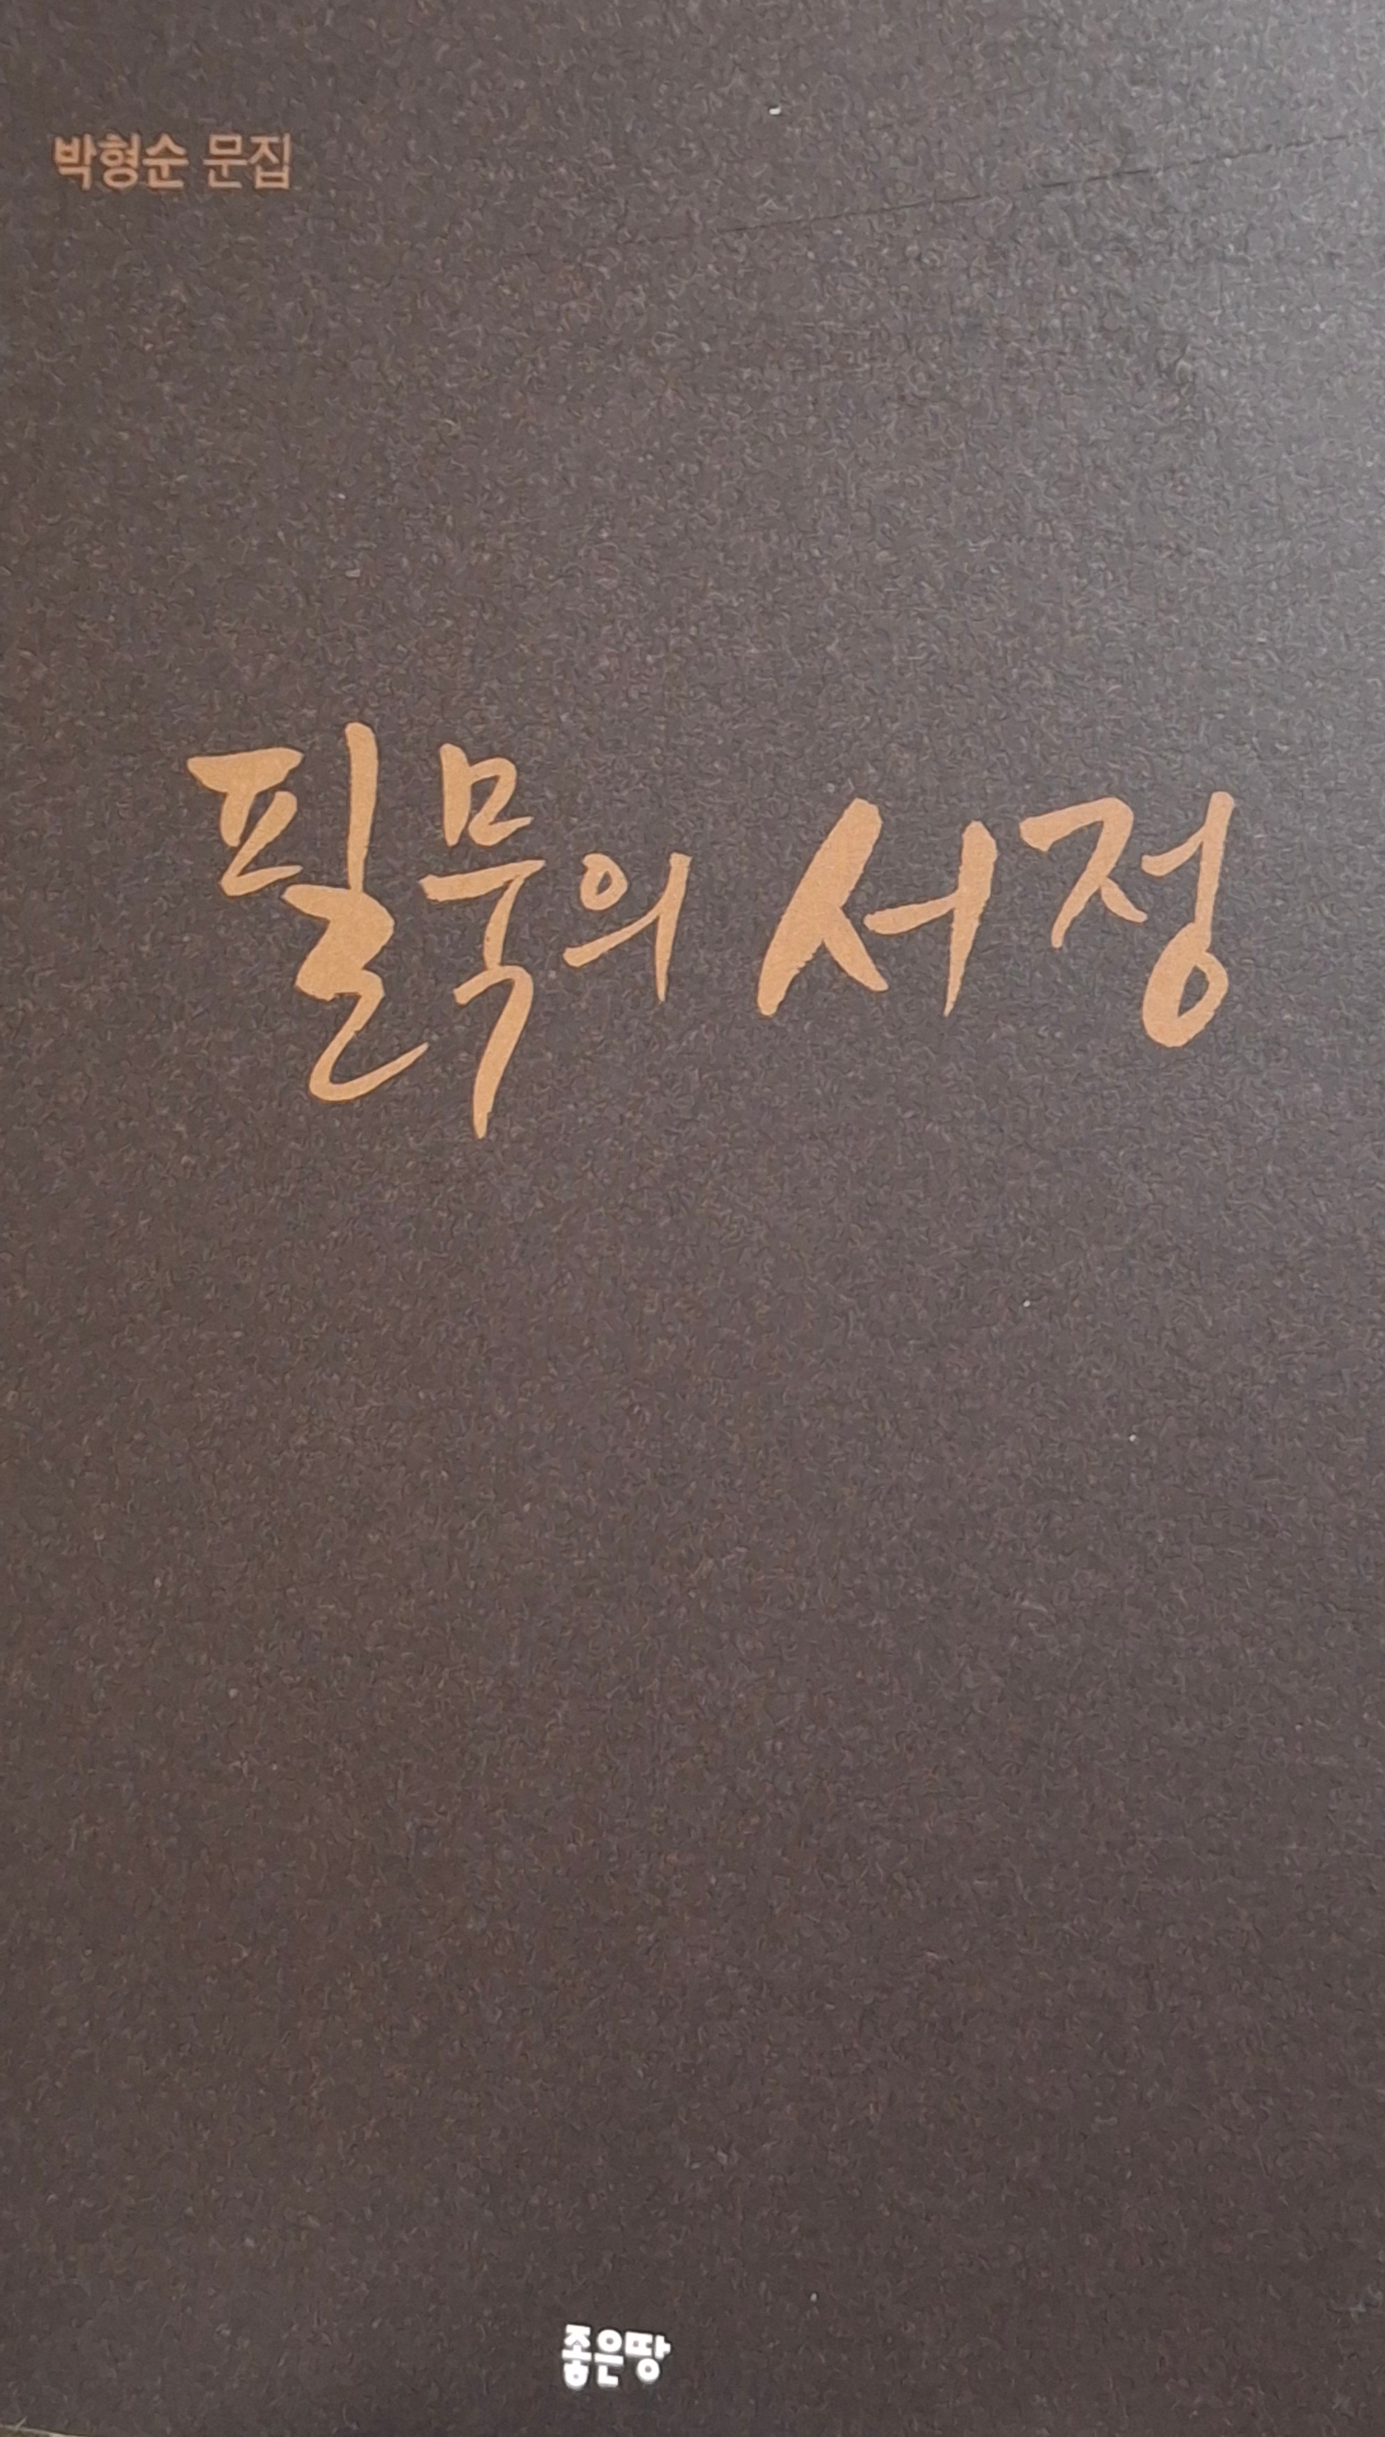 박형순 문집
필묵의 서정
좋은땅